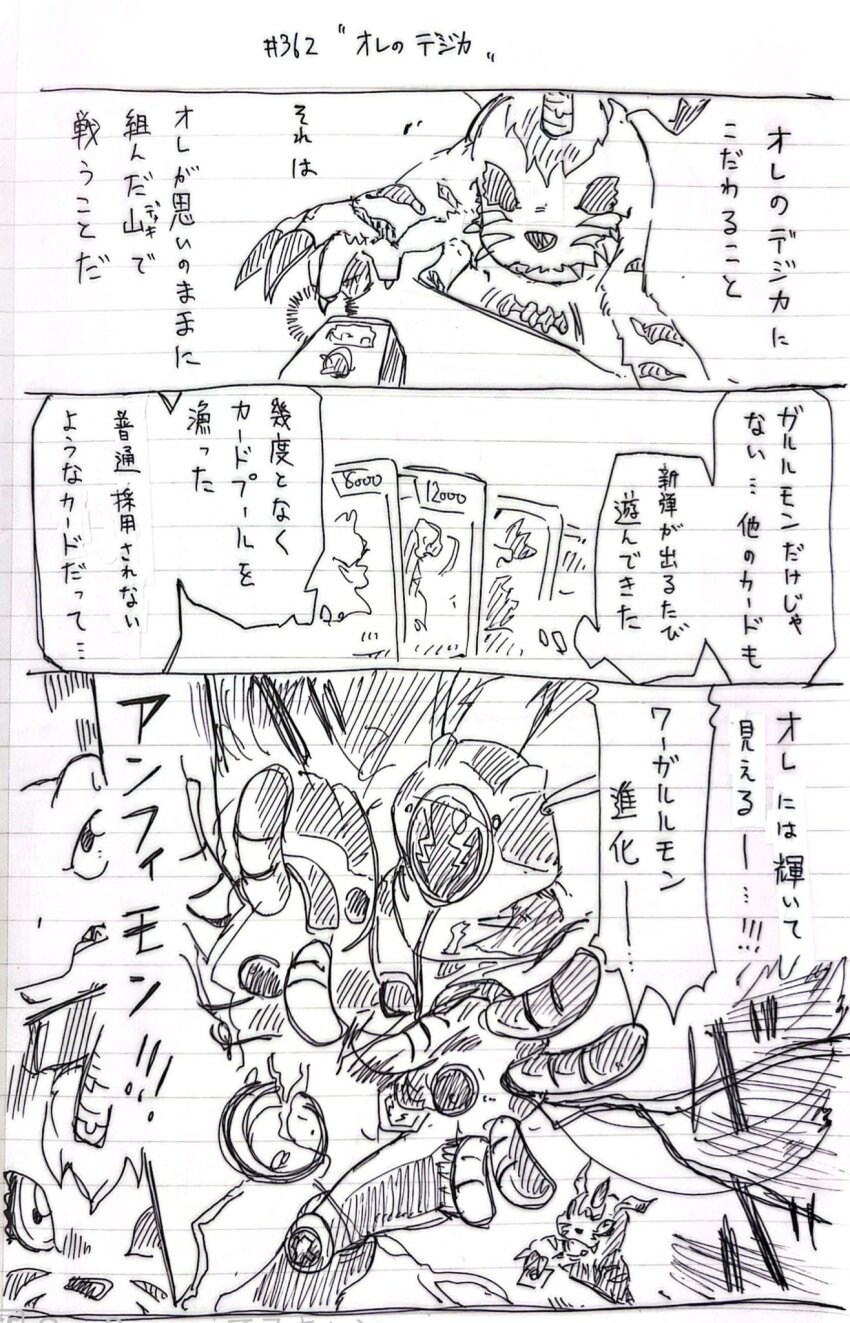 #362 "オレの デジカ"
オレのデジカに
こだわること
それは
オレが思いのままに
組んだ山で
デッキ
戦うことだ
ガルルモンだけじゃ
ない… 他のカードも
新弾が出るたび
遊んできた
8000
12000
幾度となく
カードプールを
漁った
普通 採用されない
ようなカードだって…
オレ には 輝いて
見えるー…!!!
ワーガルルモン
進化ー
アンフィモン!!!